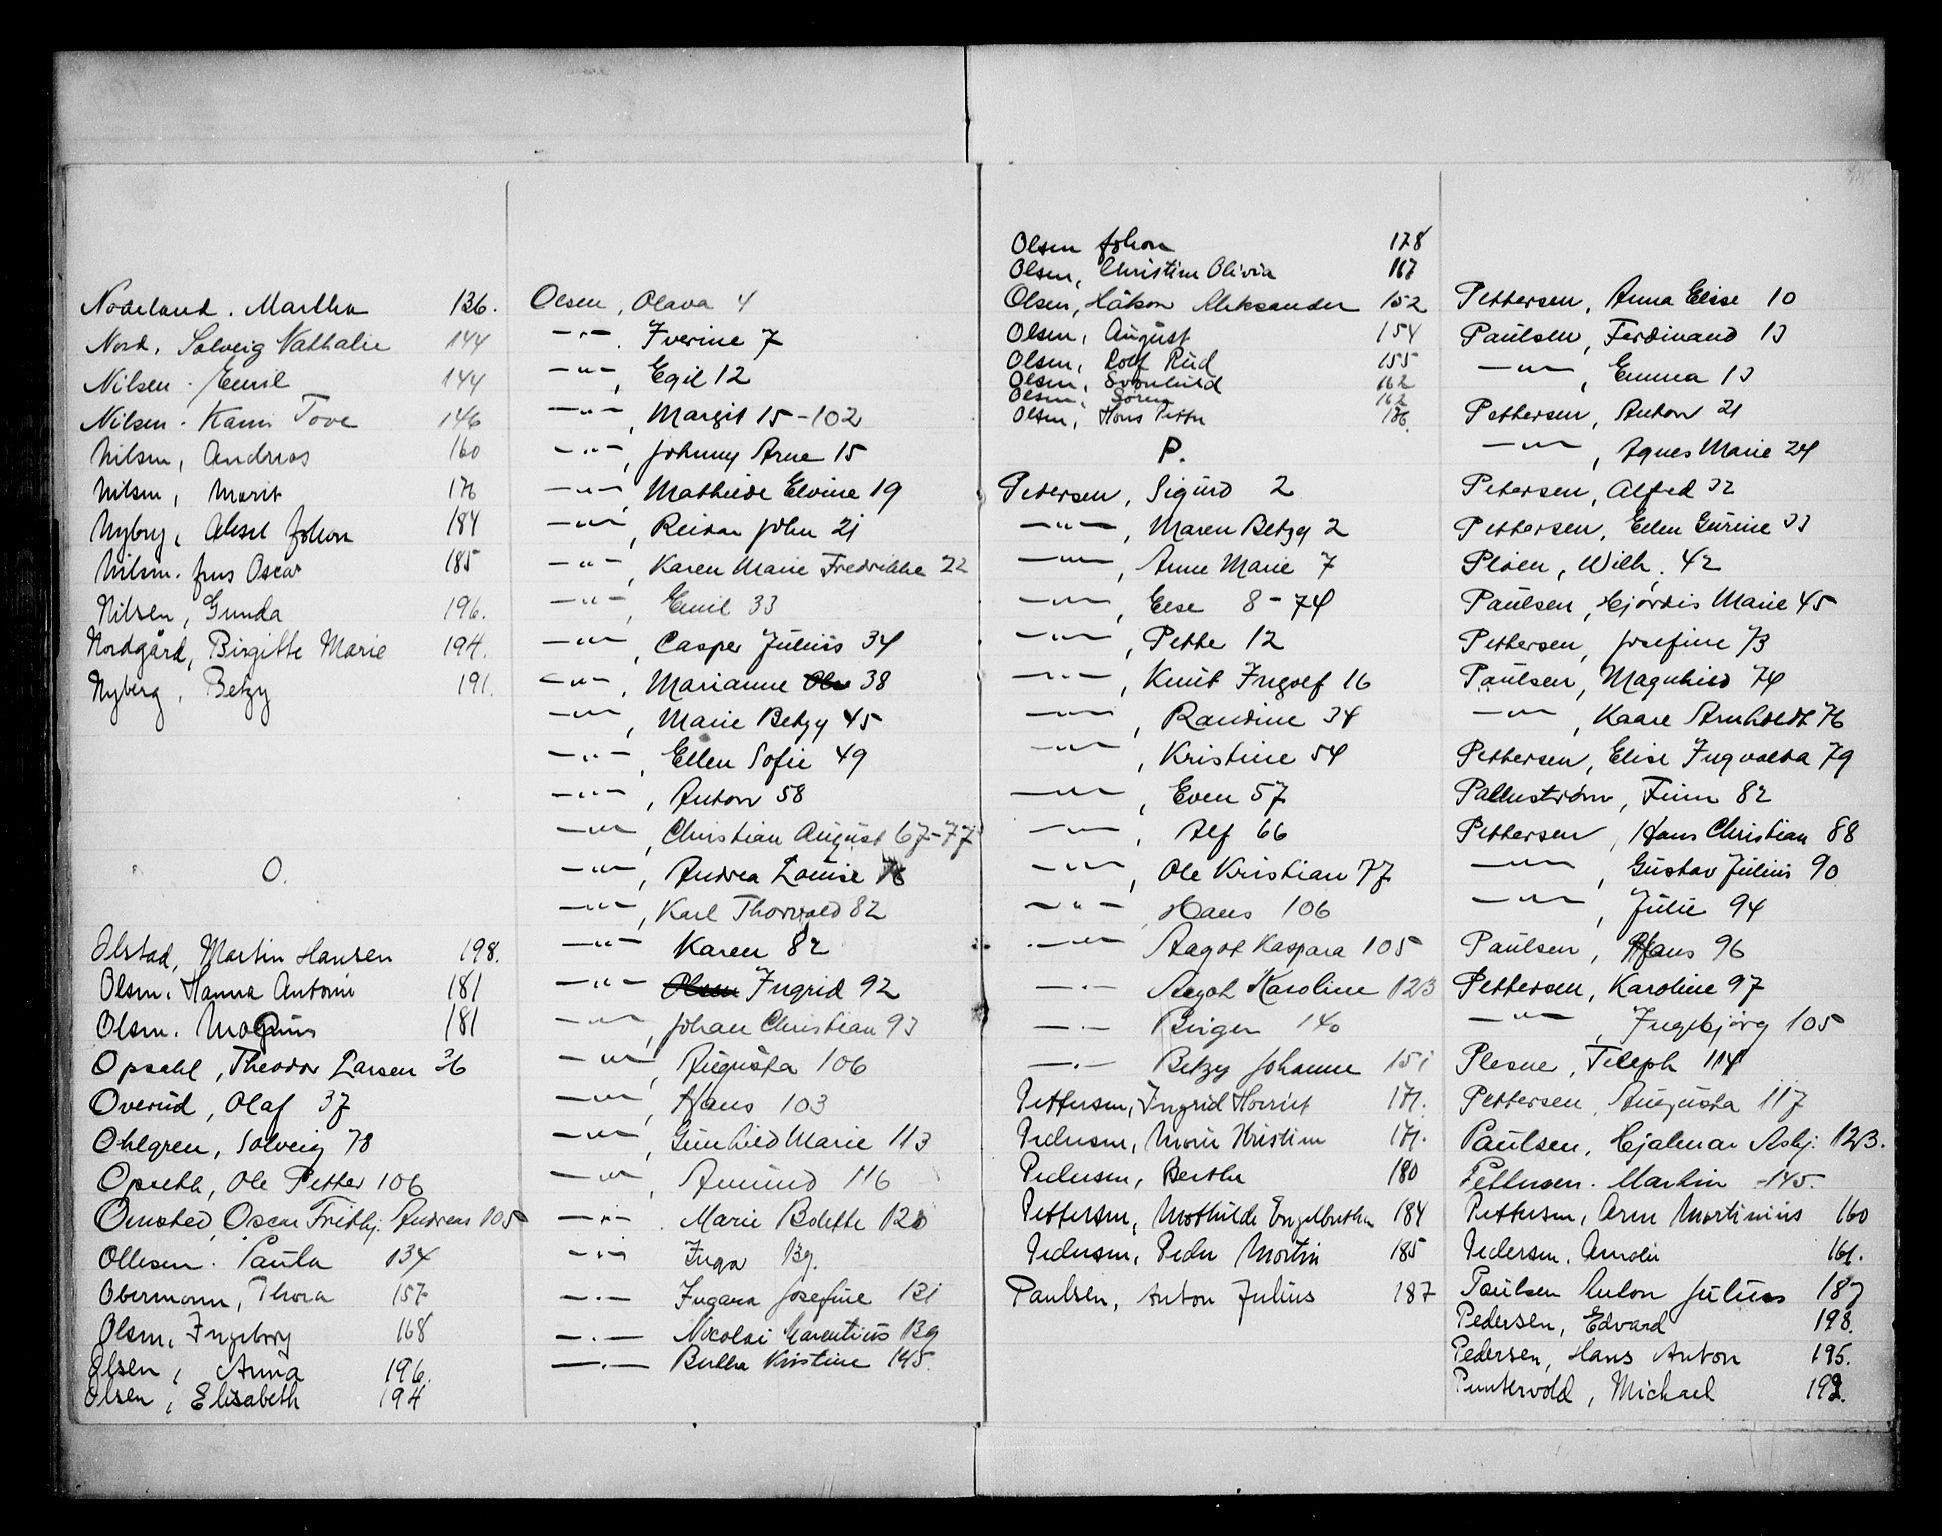 Nodeland. Martha 136.
Nord, Solveig Nathalie 144
Nilsen. Emil 144
Nilsen. Karin Tove 146
Nilsen, Andreas 160
Nilsen, Marit 176
Nyborg, Aksel Johan 184
Nilsen. Jens Oscar 185
Nilsen, Gunda 196.
Nordgård, Birgitte Marie 194.
Nyberg, Betzy 191.
O.
Olstad, Martin Hansen 198.
Olsen. Hanna Antonie 181
Olsen. Magnus 181
Opsahl, Theodor Larsen 36
Overud, Olaf 37
Ohlgren, Solveig 78
Opseth, Ole Petter 106
Omsted, Oscar Frithj. Andreas 105
Ollesen. Paula 134
Obermann, Thora 157
Olsen, Ingeborg 168
Olsen, Anna 196.
Olsen, Elisabeth 194
Olsen, Olava 4
—"—. Iverine 7
—"—, Egil 12
—"—, Margit 15-102
—"—, Johnny Arne 15
—"—, Mathilde Elvine 19
—"—, Reidar John 21
—"—, Karen Marie Fredrikke 22
—"—, Emil 33
—"—, Casper Julius 34
—"—, Marianne 38
—"—, Marie Betzy 45
—"—, Ellen Sofie 49
—"—, Anton 58
—"—, Christian August 67-77
—"—, Andrea Louise
—"—, Karl Thorvald 82
—"— Karen 82
—"— Olsen Ingrid 92
—"—, Johan Christian 93
—"—, Augusta 106
—"—, Hans 103
—"—, Gunhild Marie 113
—"—, Amund 116
—"—. Marie Bolette 120
—"— Inga 139.
—.— Ingara Josefine 131
—.— Nicolai Marentius 139
—.— Bertha Kristine 145.
Olsen Johan 178
Olsen, Christine Olivia 167
Olsen, Håkon Aleksander 152
Olsen, August 154
Olsen, Rolf Rud 155
Olsen, Svanhild 162
Olsen, Søren 162
Olsen, Hans Petter 186.
P.
Petersen, Sigurd 2
—"—, Maren Betzy 2
—"—, Anne Marie 7
—"—, Else 8-74
—"—, Petter 12
—"—, Knut Ingolf 16
—"—, Randine 34
—"—, Kristine 54
—"—, Even 57
—"—, Alf 66
—"—, Ole Kristian 77
—"—, Hans 106
—"— Aagot Kaspara 105
—.— Aagot Karoline 123
—.— Birger 140
—.— Betzy Johanne 151
Pettersen, Ingrid Harriet 171.
Pedersen, Marie Kristine 171.
Pedersen, Berthe 180
Pettersen, Mathilde Engelbrethe 184
Pedersen, Peder Martin 185
Paulsen, Anton Julius 187
Pettersen, Anna Elise 10
Paulsen, Ferdinand 13
—"—, Emma 13
Pettersen, Anton 21
—"—, Agnes Marie 24
Petersen, Alfred 32
Pettersen, Ellen Gurine 33
Pløen, Wilh. 42
Paulsen, Hjørdis Marie 45
Pettersen, Josefine 73
Paulsen, Magnhild 74
—"—, Kaare Arnholdt 76
Pettersen, Elise Ingvalda 79
Palmstrøm, Finn 82
Pettersen, Hans Christian 88
—"—, Gustav Julius 90
—"—, Julie 94
Paulsen, Hans 96
Pettersen, Karoline 97
—"—, Ingebjørg 105
Plesner, Teleph 114
Pettersen, Augusta 117
Paulsen, Hjalmar Asbj. 123.
Pettersen. Martin 145.
Pettersen, Arne Martinius 160
Pedersen. Amalie 161.
Paulsen Anton Julius 187
Pedersen, Edvard 198.
Pedersen, Hans Anton 195.
Puntervold, Michael 192.